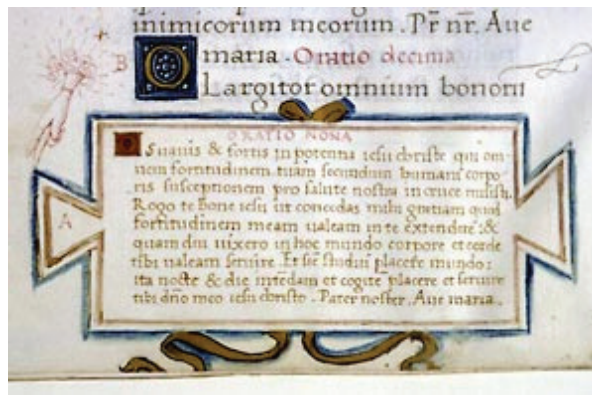 inimicorum meorum . Pr̄ nr̄. Aue
B
maria . Oratio decima
O Largitor omnium bonorū
ORATIO NONA
O Suauis & fortis in potentia iesu christe qui om
nem fortitudinem tuam secundum humani corpo
ris susceptionem pro salute nostra in cruce misisti.
A
Rogo te bone iesu ut concedas mihi gratiam quod
fortitudinem meam ualeam in te extendere : &
quam diu uixero in hoc mundo corpore et corde
tibi ualeam seruire . Et sic studui placere mundo :
ita nocte & die intendam et cogitē placere et seruire
tibi dn̄o meo iesu christo . Pater noster . Aue maria .